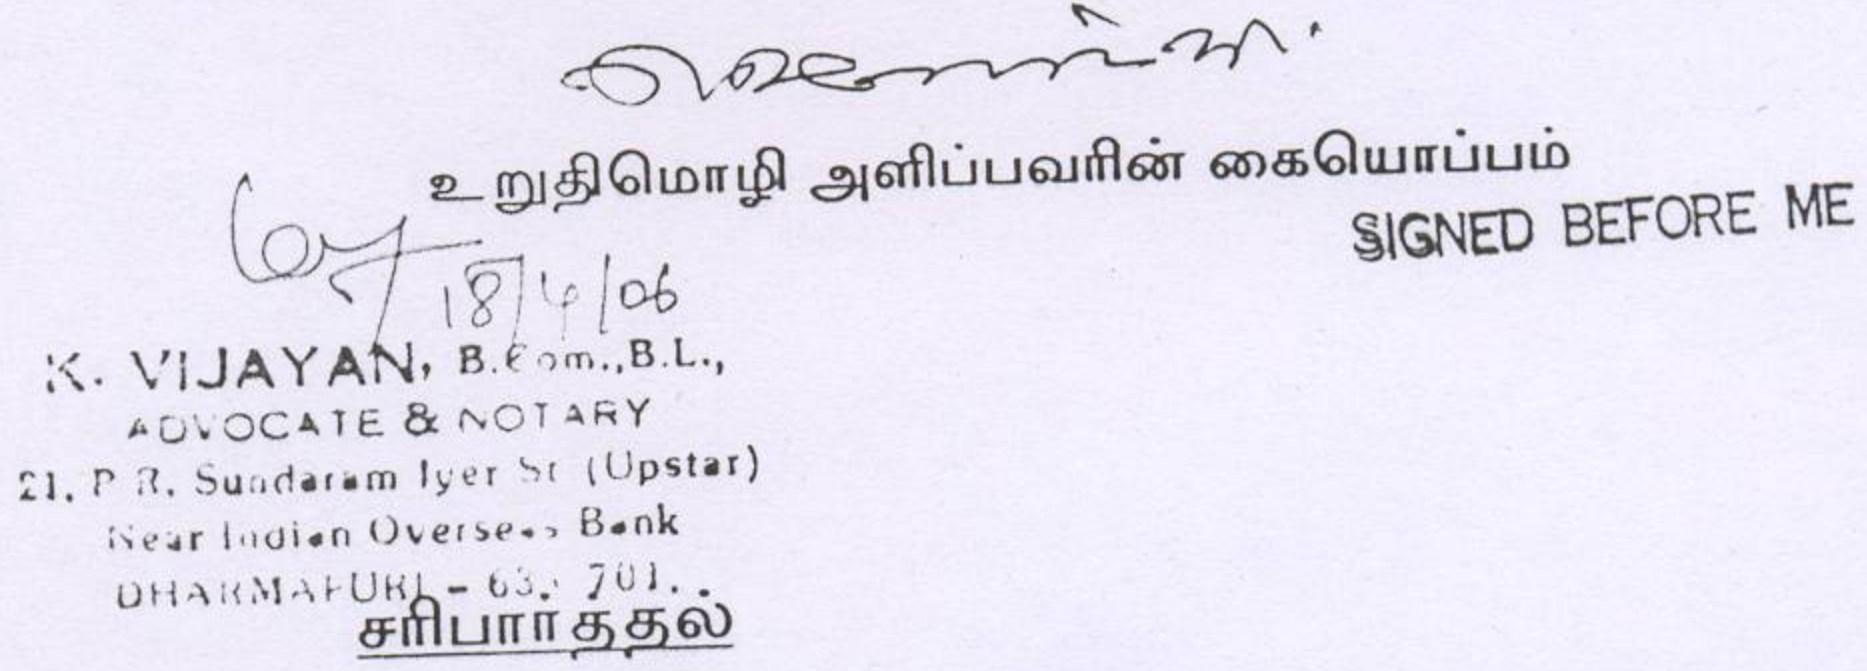 உறுதிமொழி அளிப்பவரின் கையொப்பம்
SIGNED BEFORE ME
18/4/06
K. VIJAYAN, B.Com.,B.L.,
ADVOCATE & NOTARY
21, P R. Sundaram Iyer St (Upstar)
Near Indian Overseas Bank
DHARMAPURI - 701.
சரிபார்த்தல்